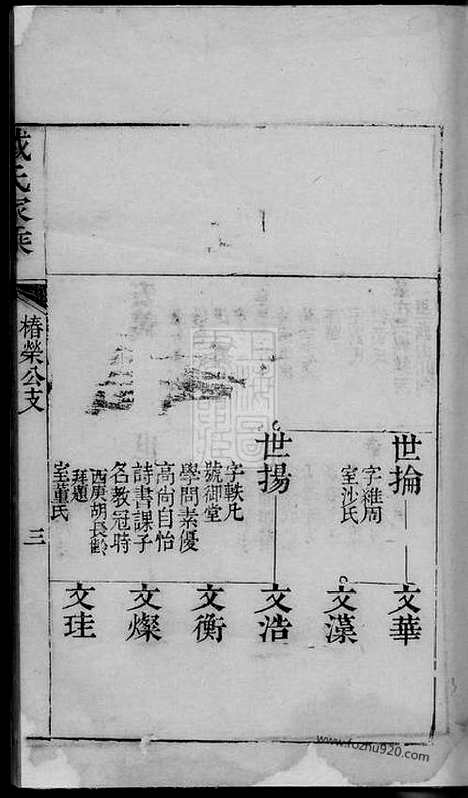 世掄
字維周
室沙氏
文華
文藻
世揚
字軼凡
號御堂
學問素優
高尚自怡
詩書課子
名教冠時
西庚胡長齡
拜題
室董氏
文浩
文衡
文燦
文珪
氏家乘
椿榮公支
三
www.fozhu920.com